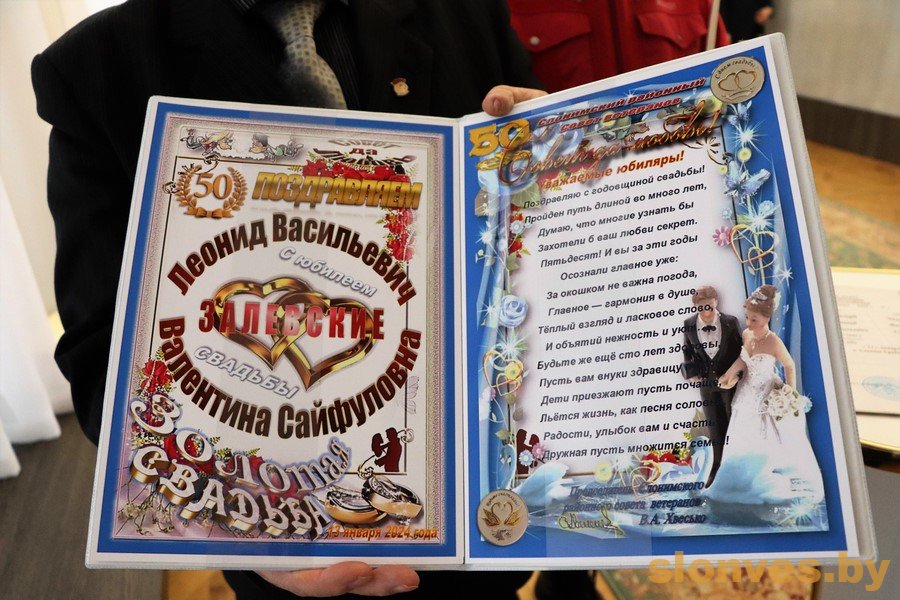 Совет
да
50
ПОЗДРАВЛЯЕМ
Леонид Васильевич
С юбилеем
ЗАЛЕВСКИЕ
СВАДЬБЫ
Валентина Сайфуловна
Золотая
СВАДЬБА
13 января 2024 года
50
Слонимский районный
совет ветеранов
Совет да любовь!
Уважаемые юбиляры!
Поздравляю с годовщиной свадьбы!
Пройден путь длиной во много лет,
Думаю, что многие узнать бы
Захотели б ваш любви секрет.
Пятьдесят! И вы за эти годы
Осознали главное уже:
За окошком не важна погода,
Главное — гармония в душе,
Тёплый взгляд и ласковое слово,
И объятий нежность и уют
Будьте же ещё сто лет здоровы,
Пусть вам внуки здравицу
Дети приезжают пусть почаще,
Льётся жизнь, как песня
Радости, улыбок вам и счастья
Дружная пусть множится семья!
Председатель Слонимского
районного совета ветеранов
В.А. Хвесько
slonves.by